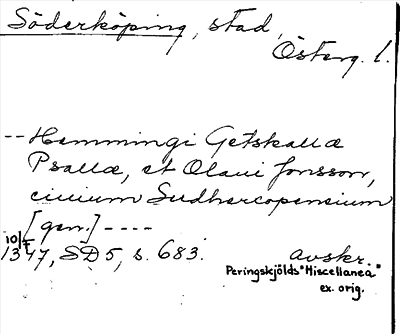 Söderköping, stad,
Österg. l.
-- Hemmingi Getskallæ
Psallæ, et Olaui Jonsson,
ciuium Sudhercopensium
[gen.] ----
10/7
1347, SD 5, s. 683. avskr.
Peringskjölds "Miscellanea"
ex. orig.